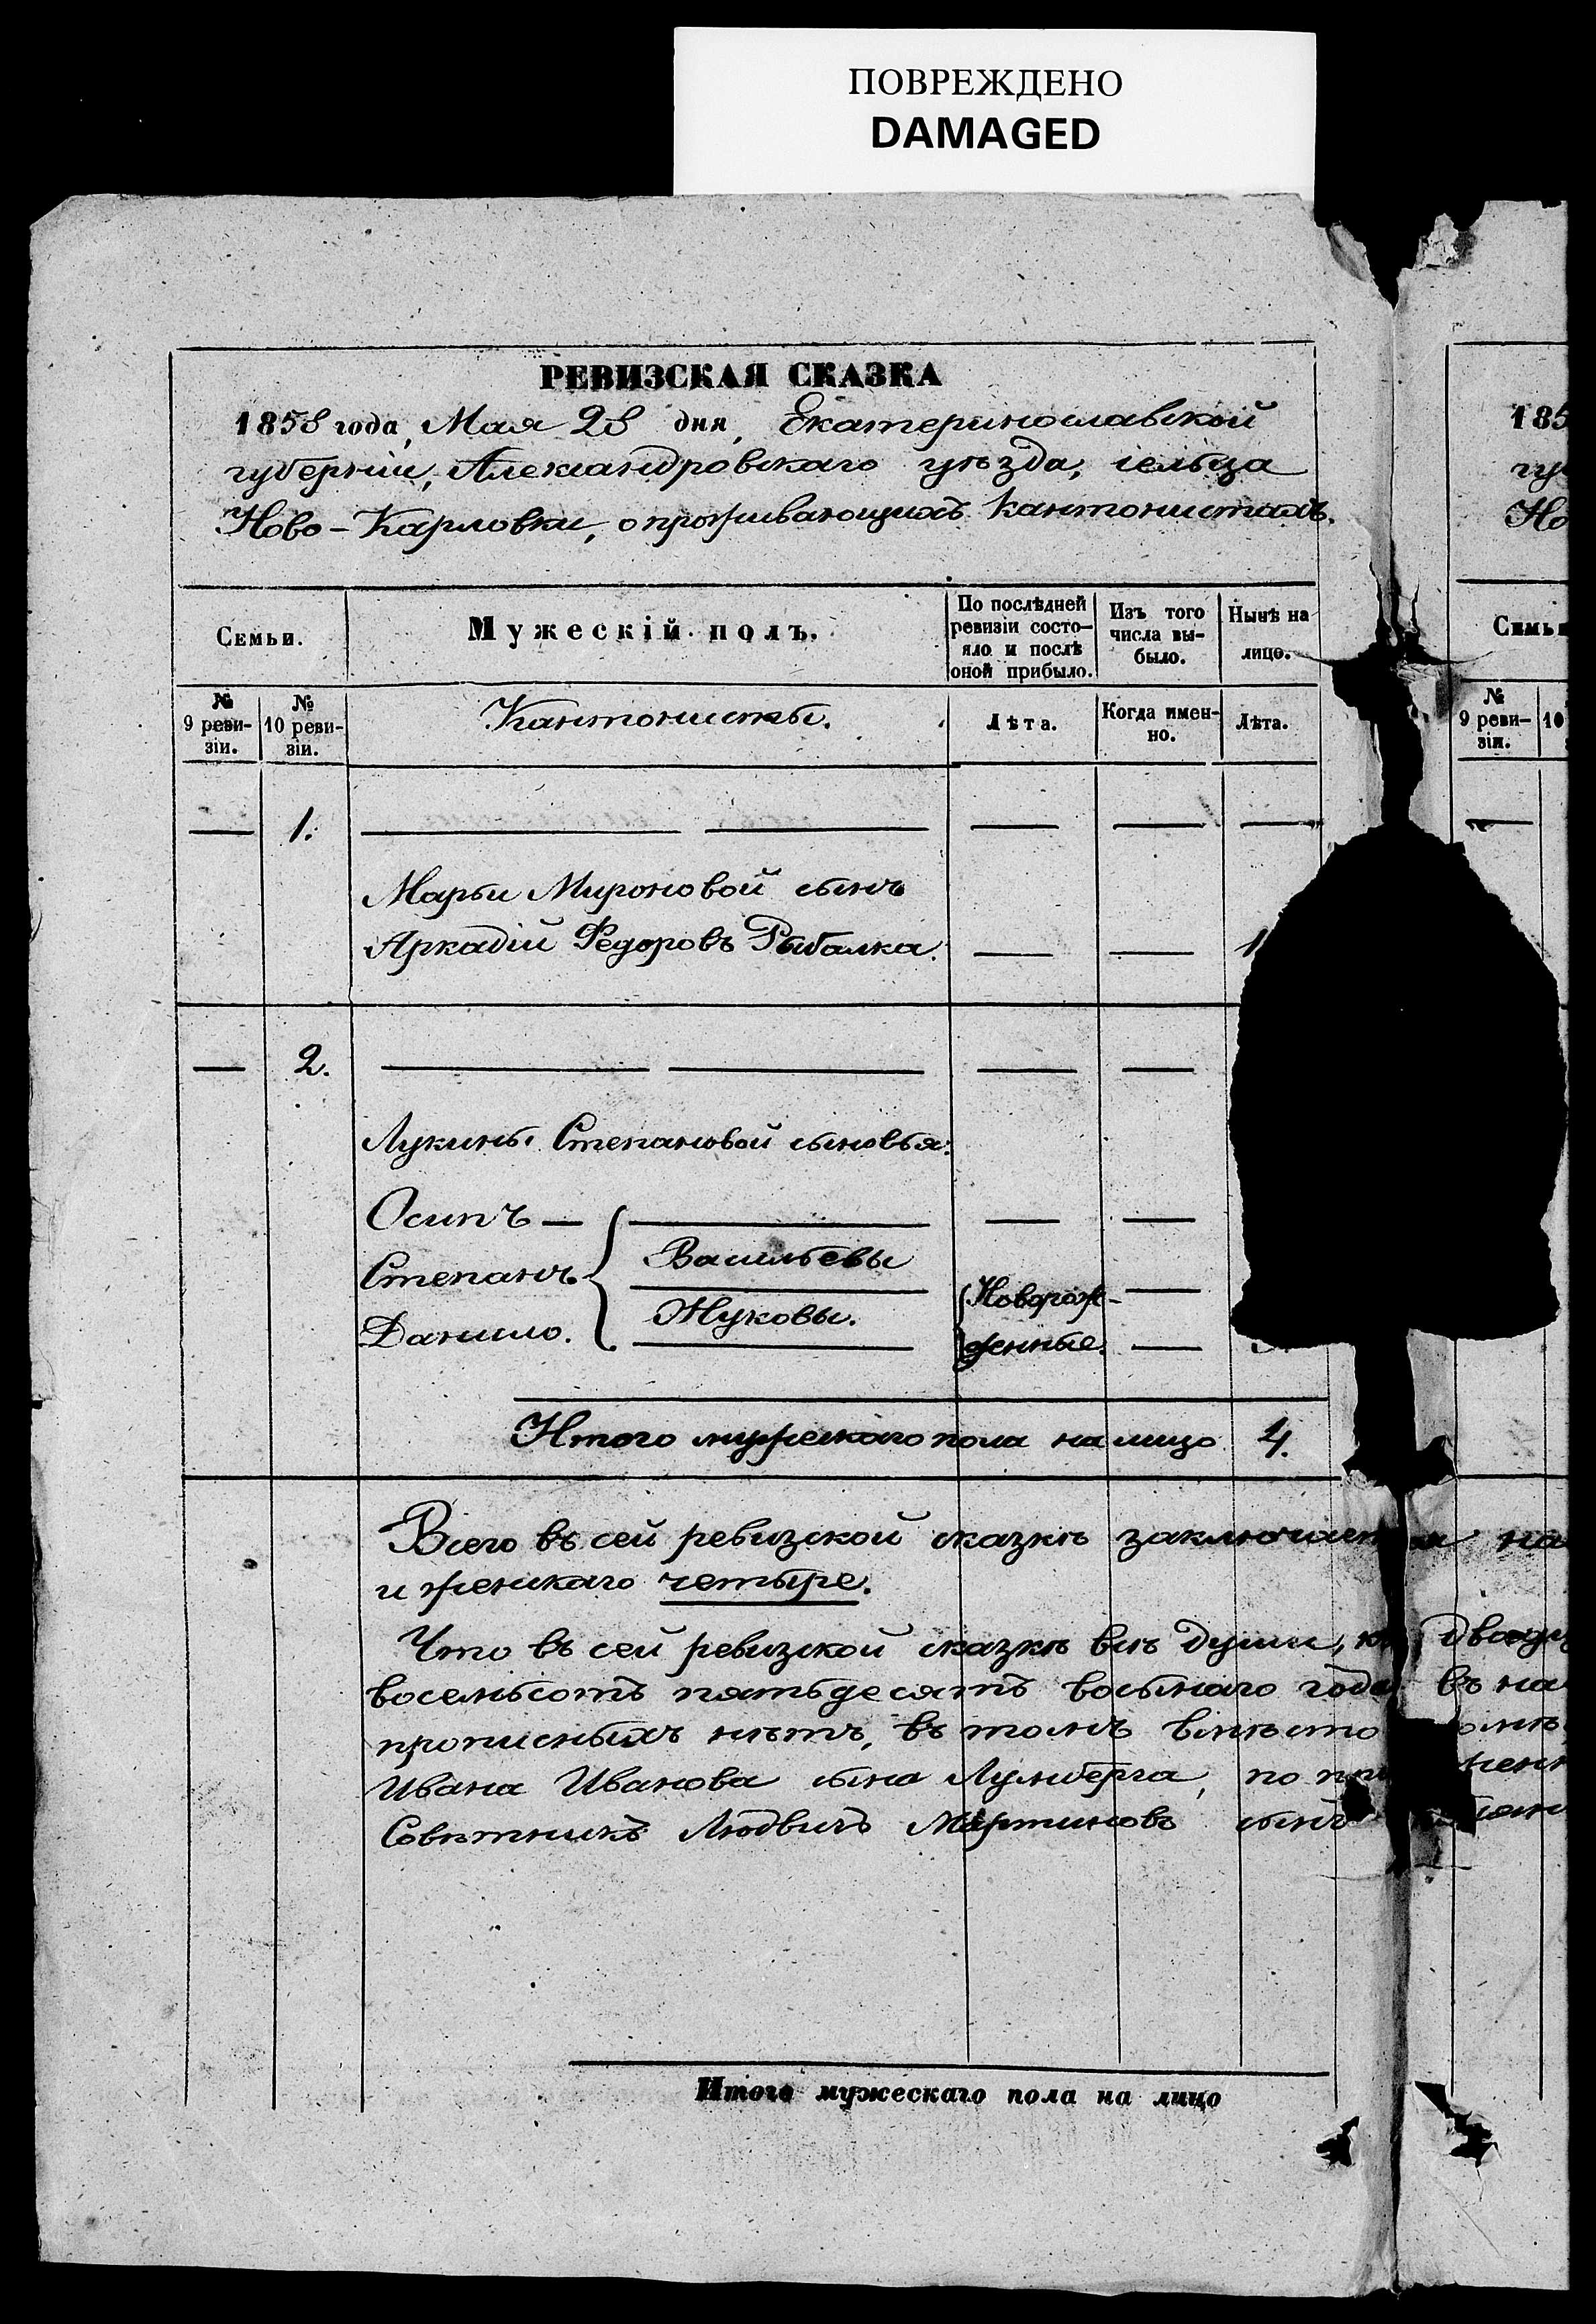 ПОВРЕЖДЕНО
DAMAGED
РЕВИЗСКАЯ СКАЗКА
1858 года, Мая 28 дня, Екатеринославской
губерніи, Александровскаго уѣзда, сельца
Ново-Карловки, о проживающихъ Кантонистахъ.
185
гу
Но
Семьи.
Мужескій полъ.
По послѣдней ревизіи состо-
яло и послѣ оной прибыло.
Изъ того числа вы-
было.
Нынѣ на лицо.
Семьи
№ 9 реви-
зіи.
№ 10 реви-
зіи.
Кантонисты.
Лѣта.
Когда имен-
но.
Лѣта.
№ 9 реви-
зіи.
10
— 1. — — — — —
Марьи Мироновой сынъ
Аркадій Федоровъ Рыбалка. — — 1
— 2. — — — —
Лукины Степановой сыновья:
Осипъ — — — —
Степанъ Васильевы Новорож- —
Данило. Жуковы. денные. —
Итого мужескаго пола налицо 4.
Всего въ сей ревизской сказкѣ на
и женскаго четыре.
Что въ сей ревизской сказкѣ всѣ души,
восемьсотъ пятьдесятъ восьмаго года въ на
прописныхъ нѣтъ, въ томъ вмѣсто
Ивана Иванова сына Лумберга, по
Совѣтникъ Людвигъ Мартиновъ сынъ
Итого мужескаго пола на лицо